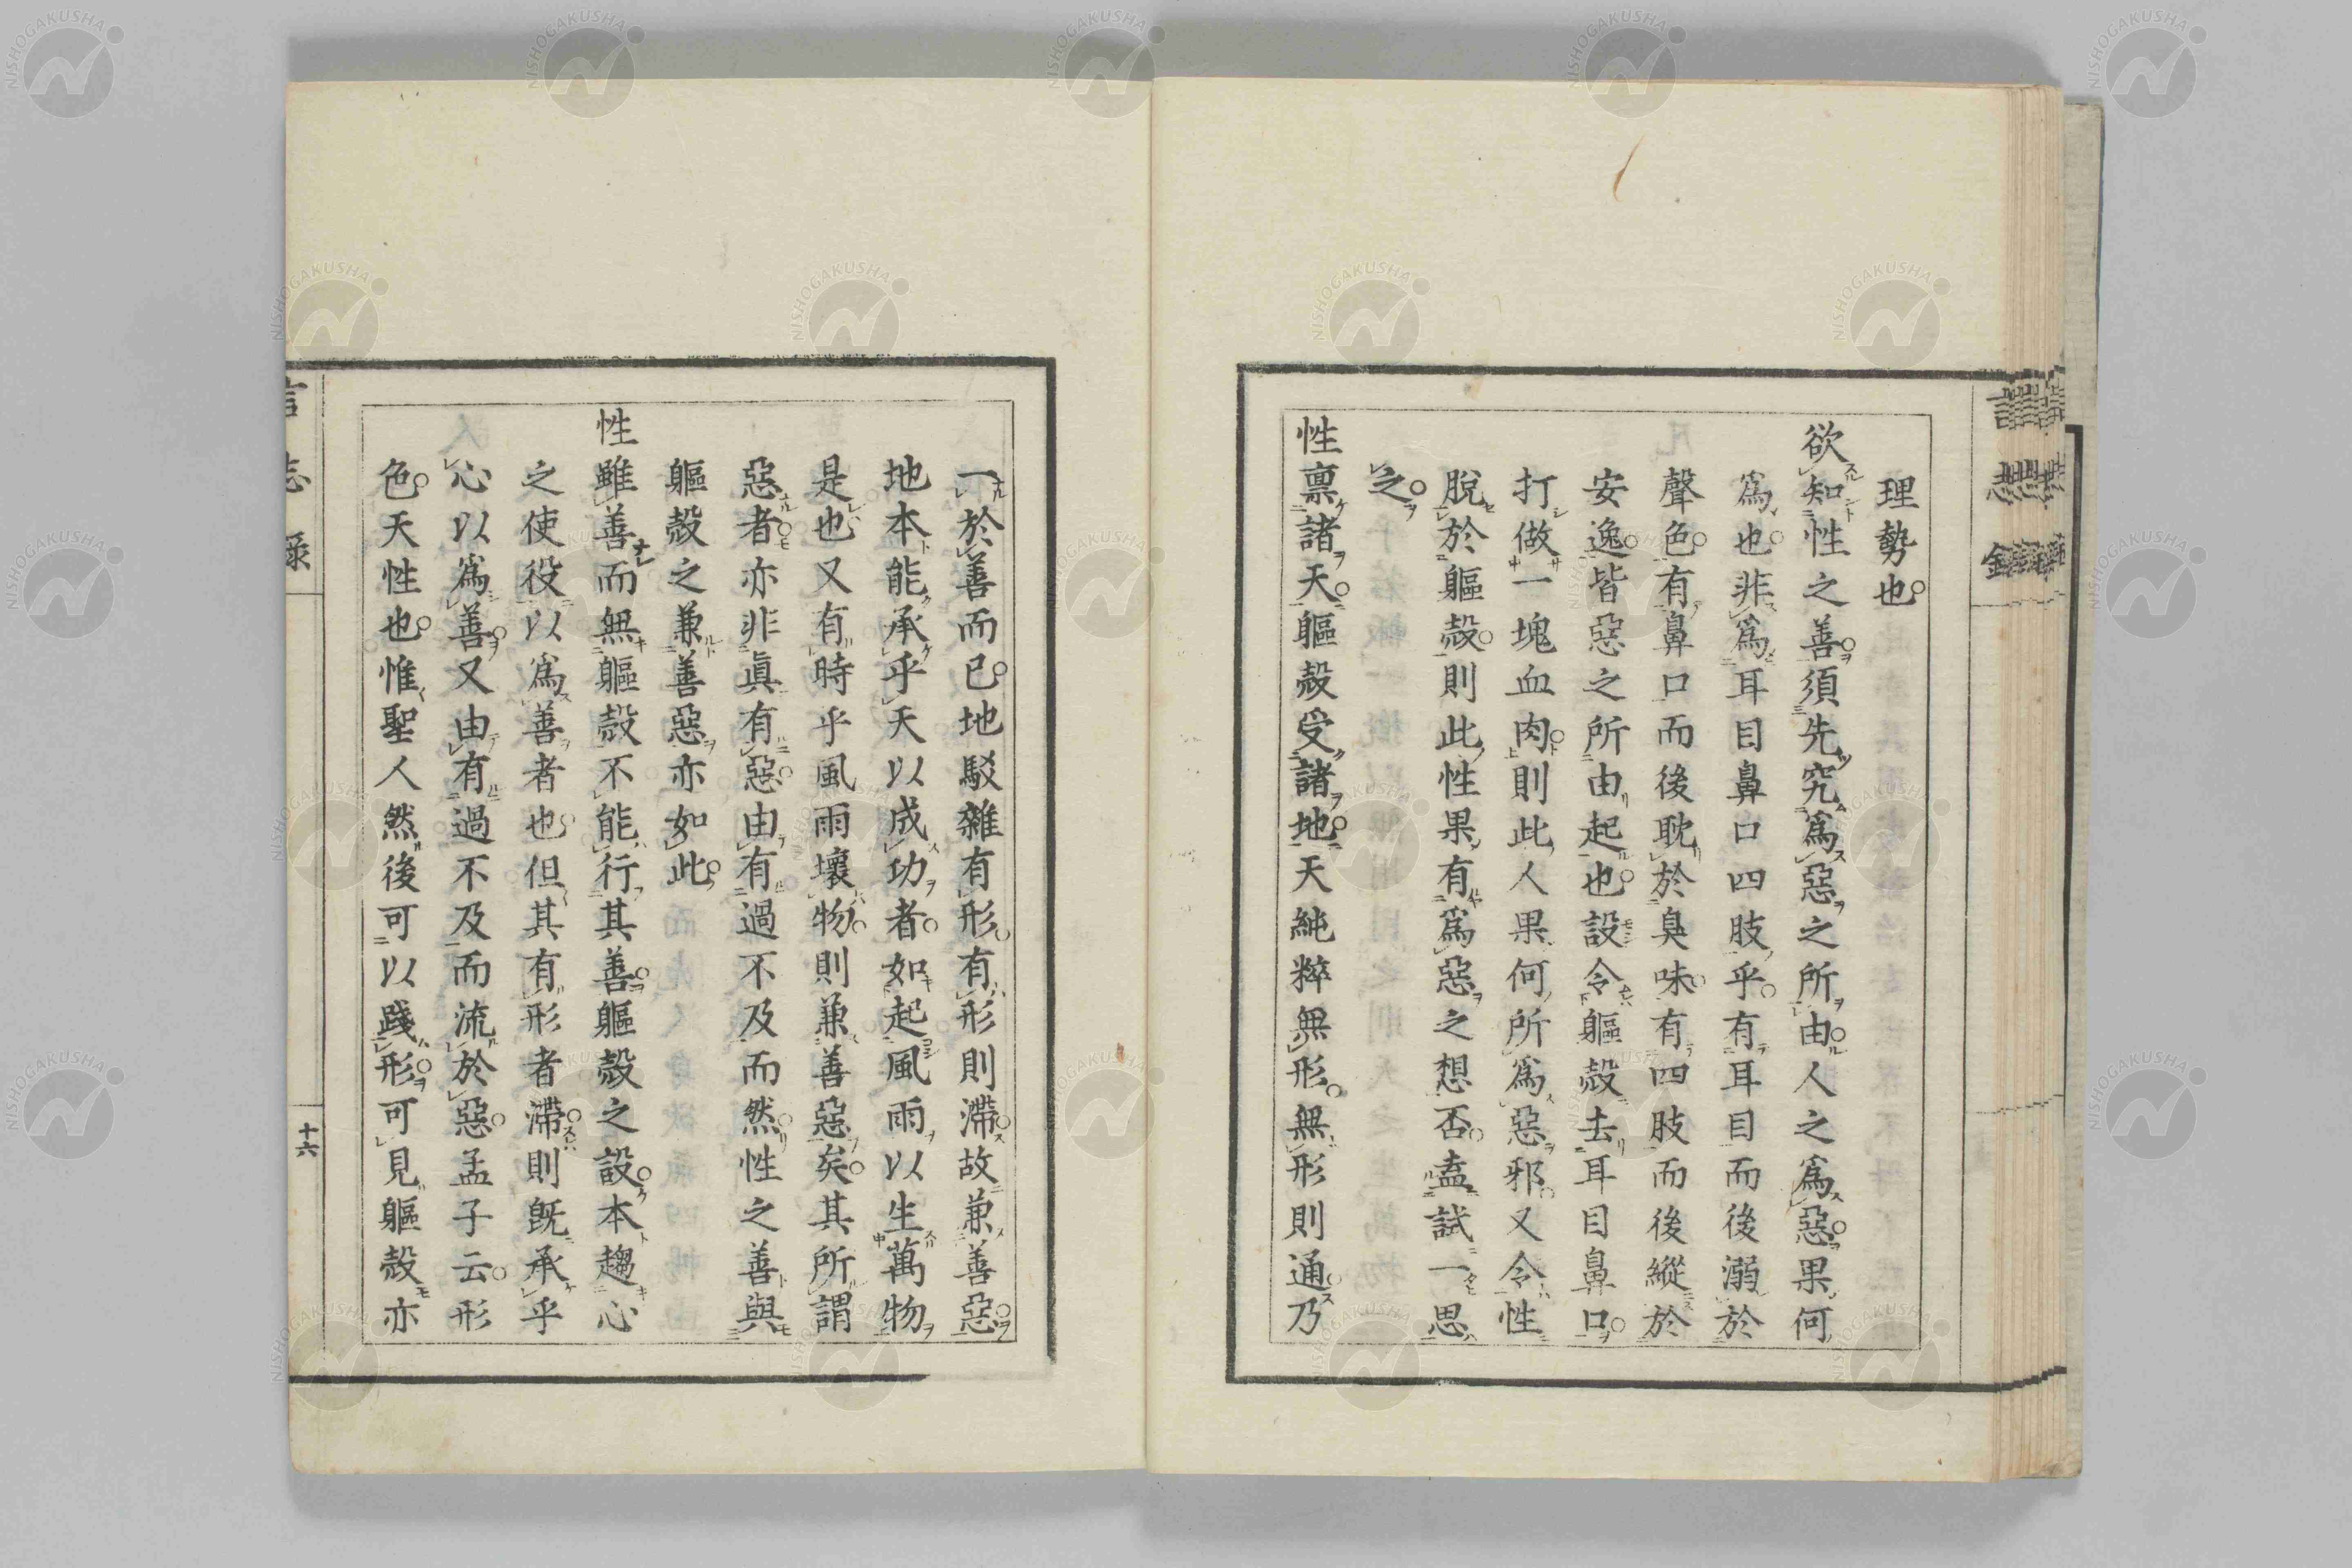 理勢也
欲知性之善須先究爲惡之所由人之爲惡果何
爲也非爲耳目鼻口四肢乎有耳目而後溺於
聲色有鼻口而後耽於臭味有四肢而後縱於
安逸皆惡之所由起也設令軀殼去耳目鼻口
打做一塊血肉則此人果何所爲惡邪又令性
脫於軀殼則此性果有爲惡之想否盍試一思
之
性禀諸天軀殼受諸地天純粹無形無形則通乃
一於善而已地駁雜有形有形則滯故兼善惡
地本能承乎天以成功者如起風雨以生萬物
是也又有時乎風雨壞物則兼善惡矣其所謂
惡者亦非眞有惡由有過不及而然性之善與
軀殼之兼善惡亦如此
性雖善而無軀殼不能行其善軀殼之設本趨心
之使役以爲善者也但其有形者滯則旣承乎
心以爲善又由有過不及而流於惡孟子云形
色天性也惟聖人然後可以踐形可見軀殼亦
言志錄
十六
NISHOGAKUSHA